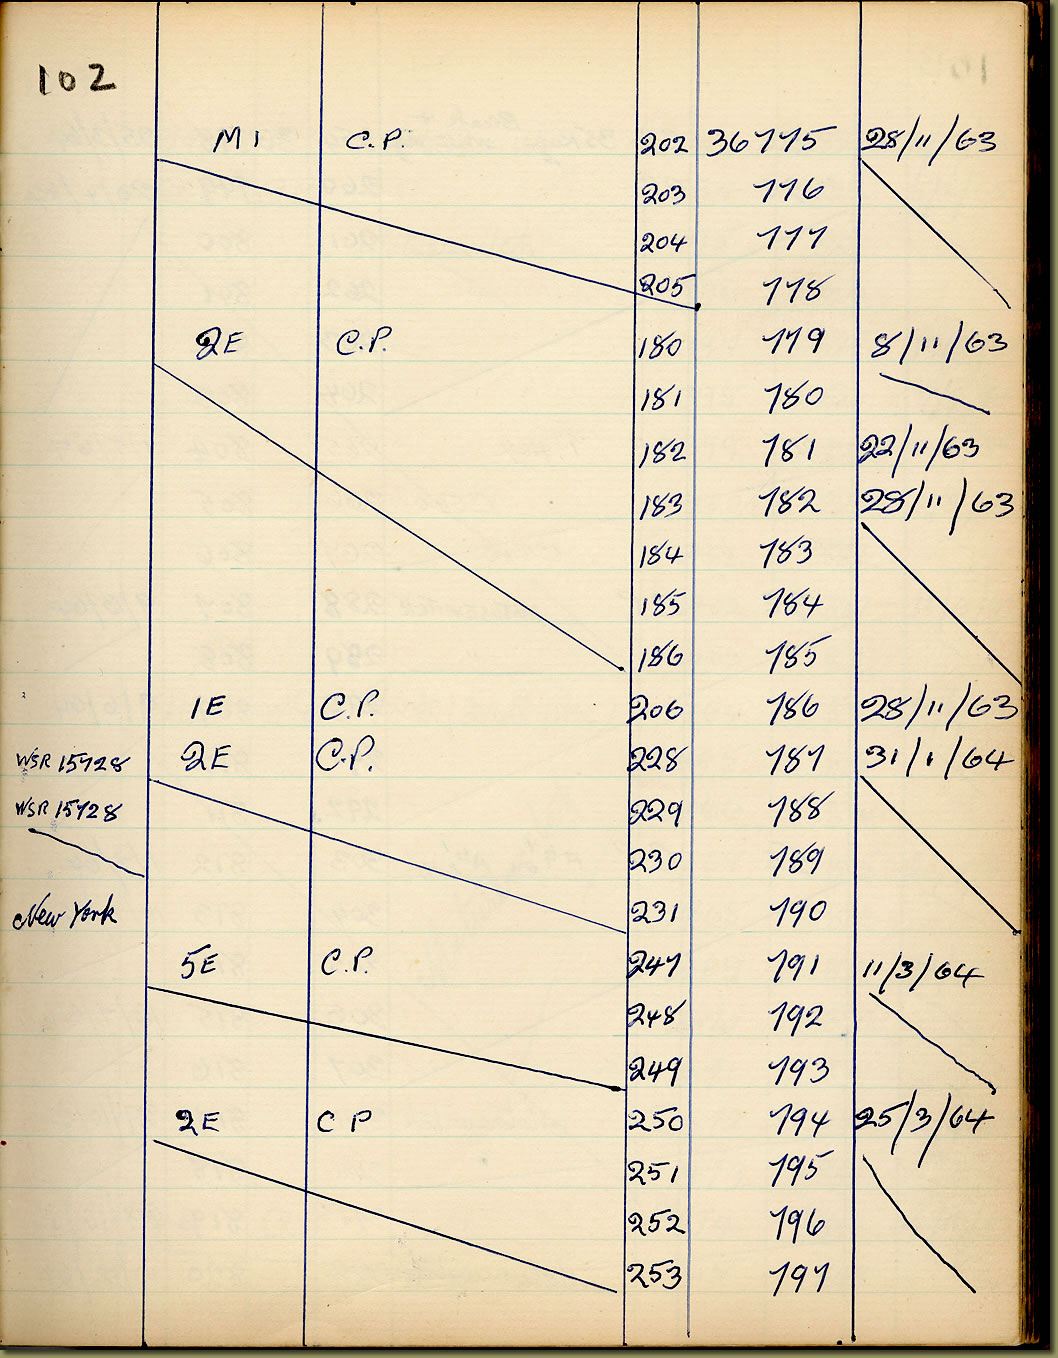 102
M1 C.P. 202 36775 28/11/63
203 776
204 777
205 778
2E C.P. 180 779 8/11/63
181 780
182 781 22/11/63
183 782 28/11/63
184 783
185 784
186 785
1E C.P. 206 786 28/11/63
WSR 15728 2E C.P. 228 787 31/1/64
WSR 15728 229 788
230 789
New York 231 790
5E C.P. 247 791 11/3/64
248 792
249 793
2E C P 250 794 25/3/64
251 795
252 796
253 797